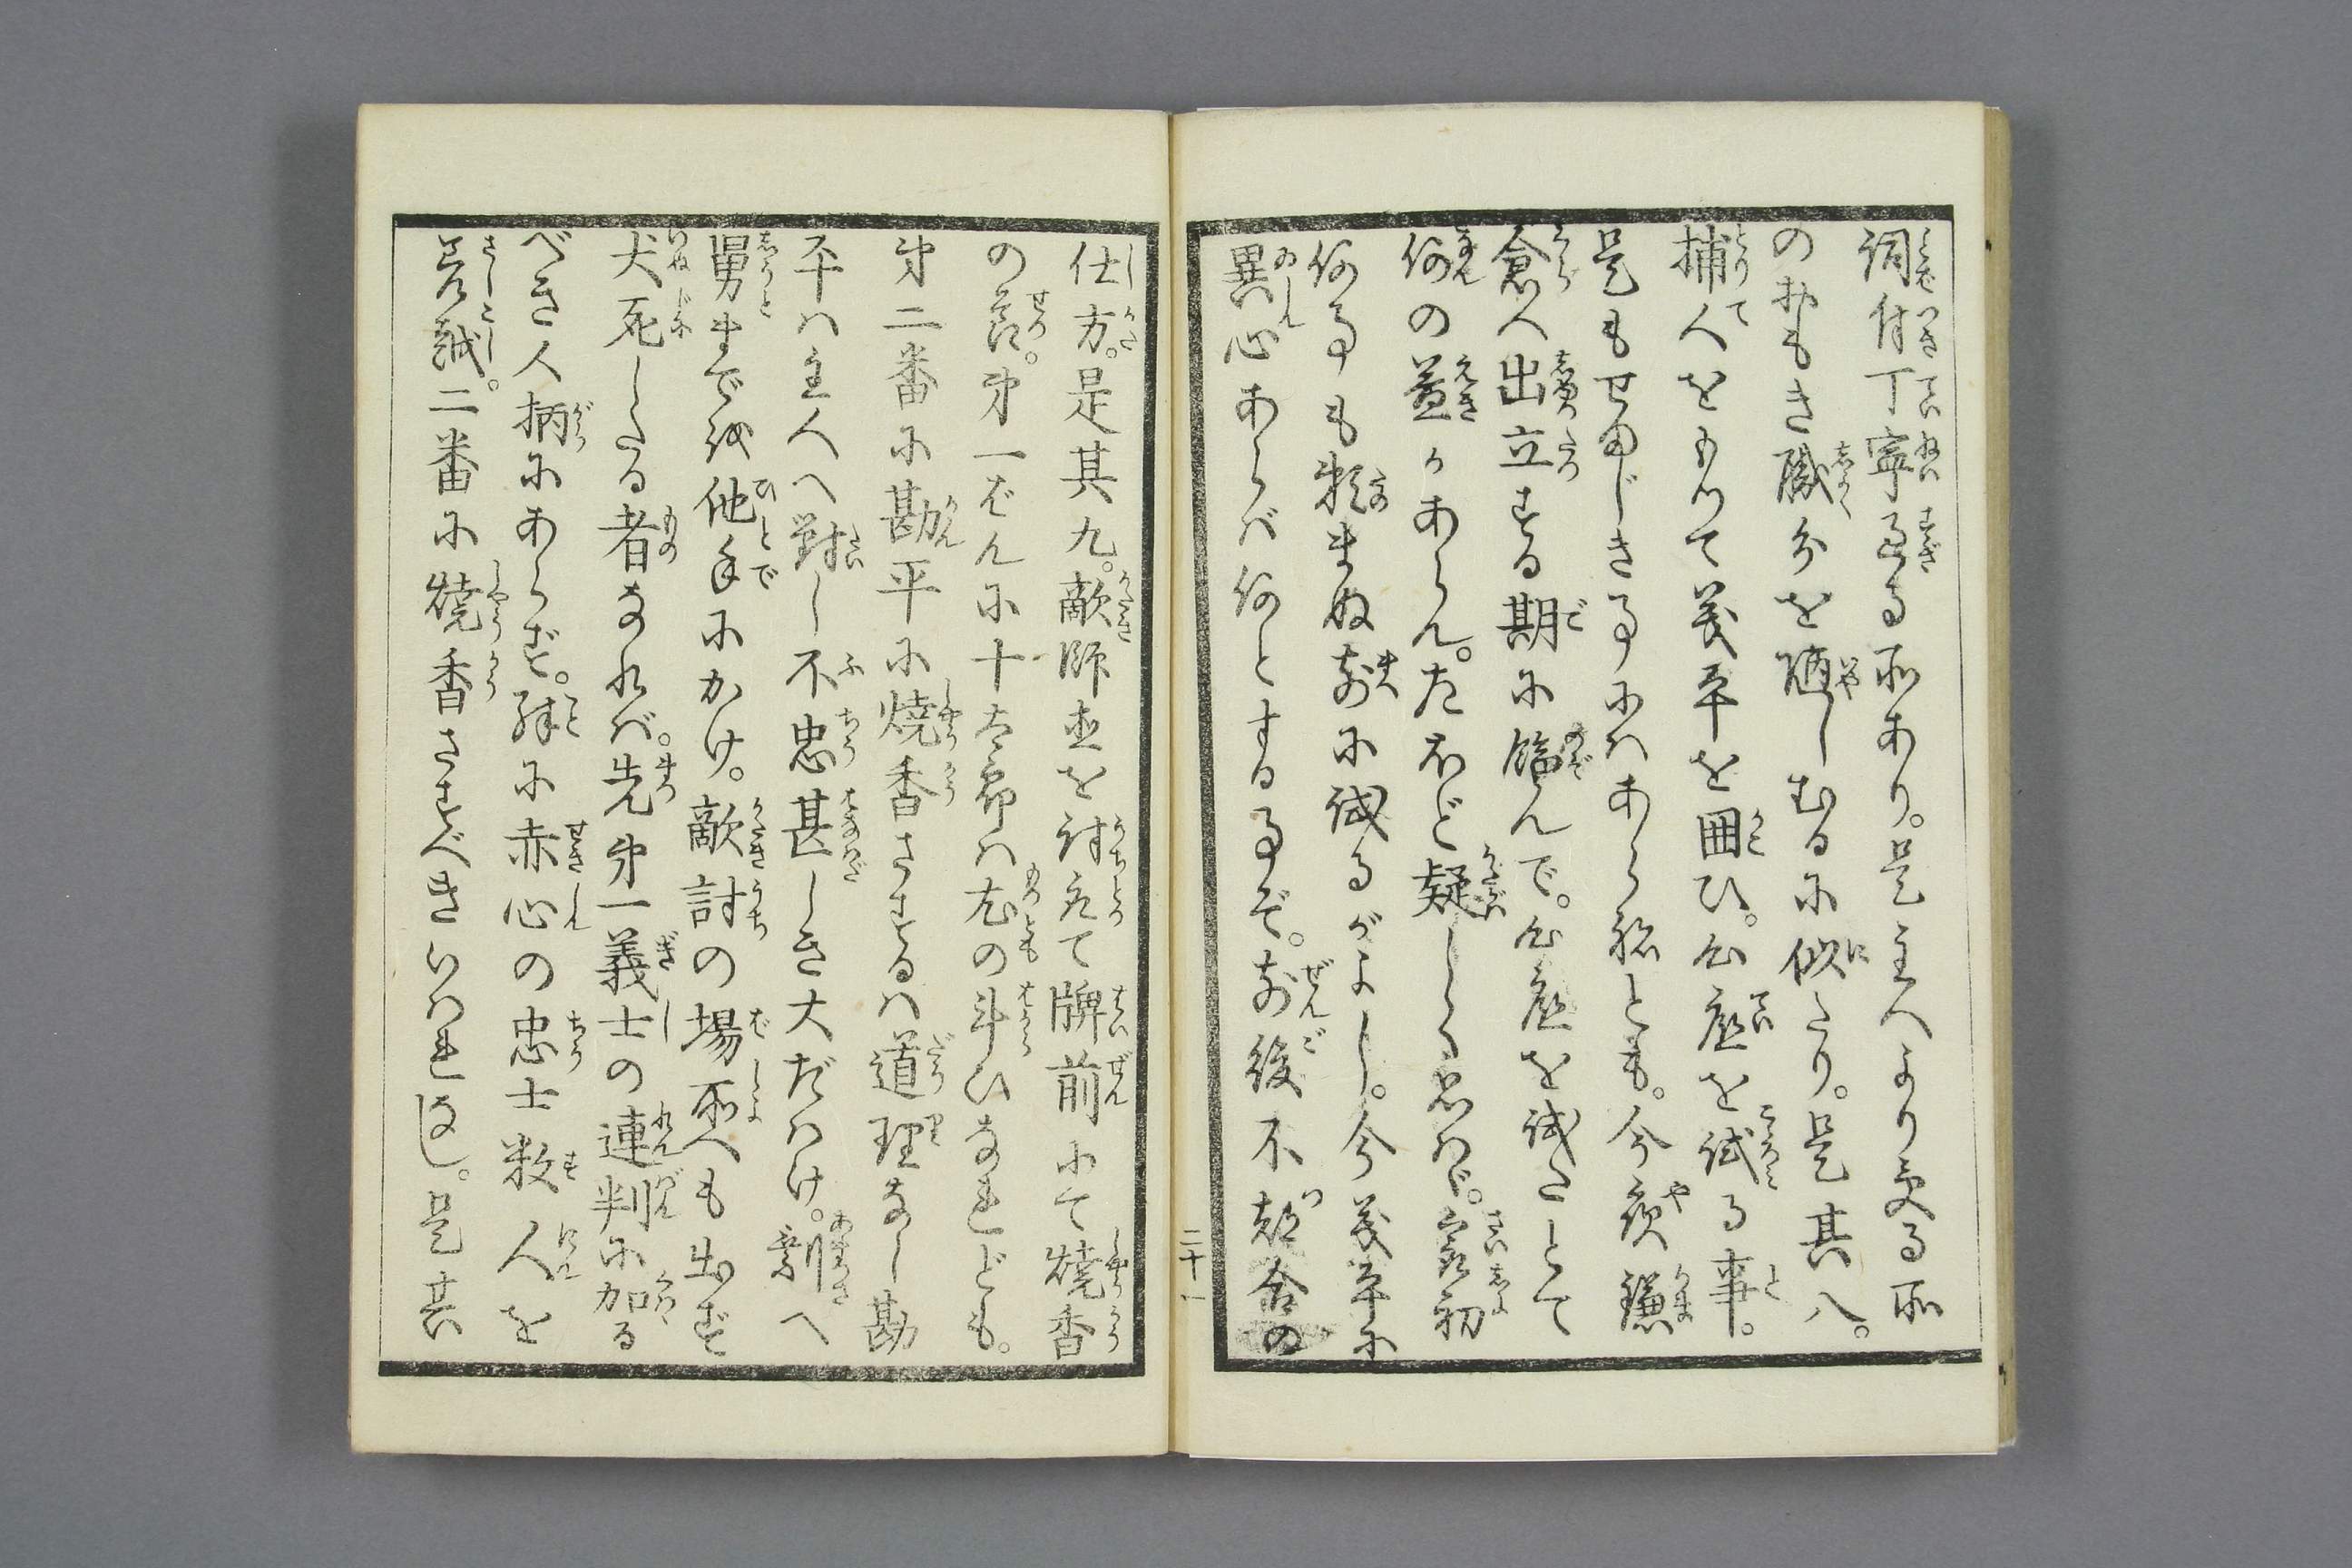 詞付丁寧過る所あり。是主人より受る所
のおもき職分を陋しむるに似たり。是其八。
捕人をもつて義平を囲ひ。心底を試る事。
是もせまじき事にはあらねとも。今夜鎌
倉へ出立する期に臨んで。心底を試たとて
何の益かあらん。たほど疑しく思はゞ。最初
何事も頼まぬ前に試るがよし。今義平に
異心あらば何とする事ぞ。前後不都合の
二十一
仕方。是其九。敵師直を討取て牌前にて焼香
の節。第一ばんに十太郎は尤の斗ひなれども。
第二番に勘平に焼香さするは道理なし勘
平は主人へ対し不忠甚しき大だはけ。剰へ
舅まで殺他手にかけ。敵討の場所へも出ず
犬死したる者なれば。先第一義士の連判に加る
べき人柄にあらず。殊に赤心の忠士数人を
差越。二番に焼香さすべきいはれなし。是其